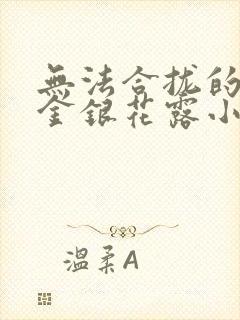 無法合拢的
金銀花露小
温柔A